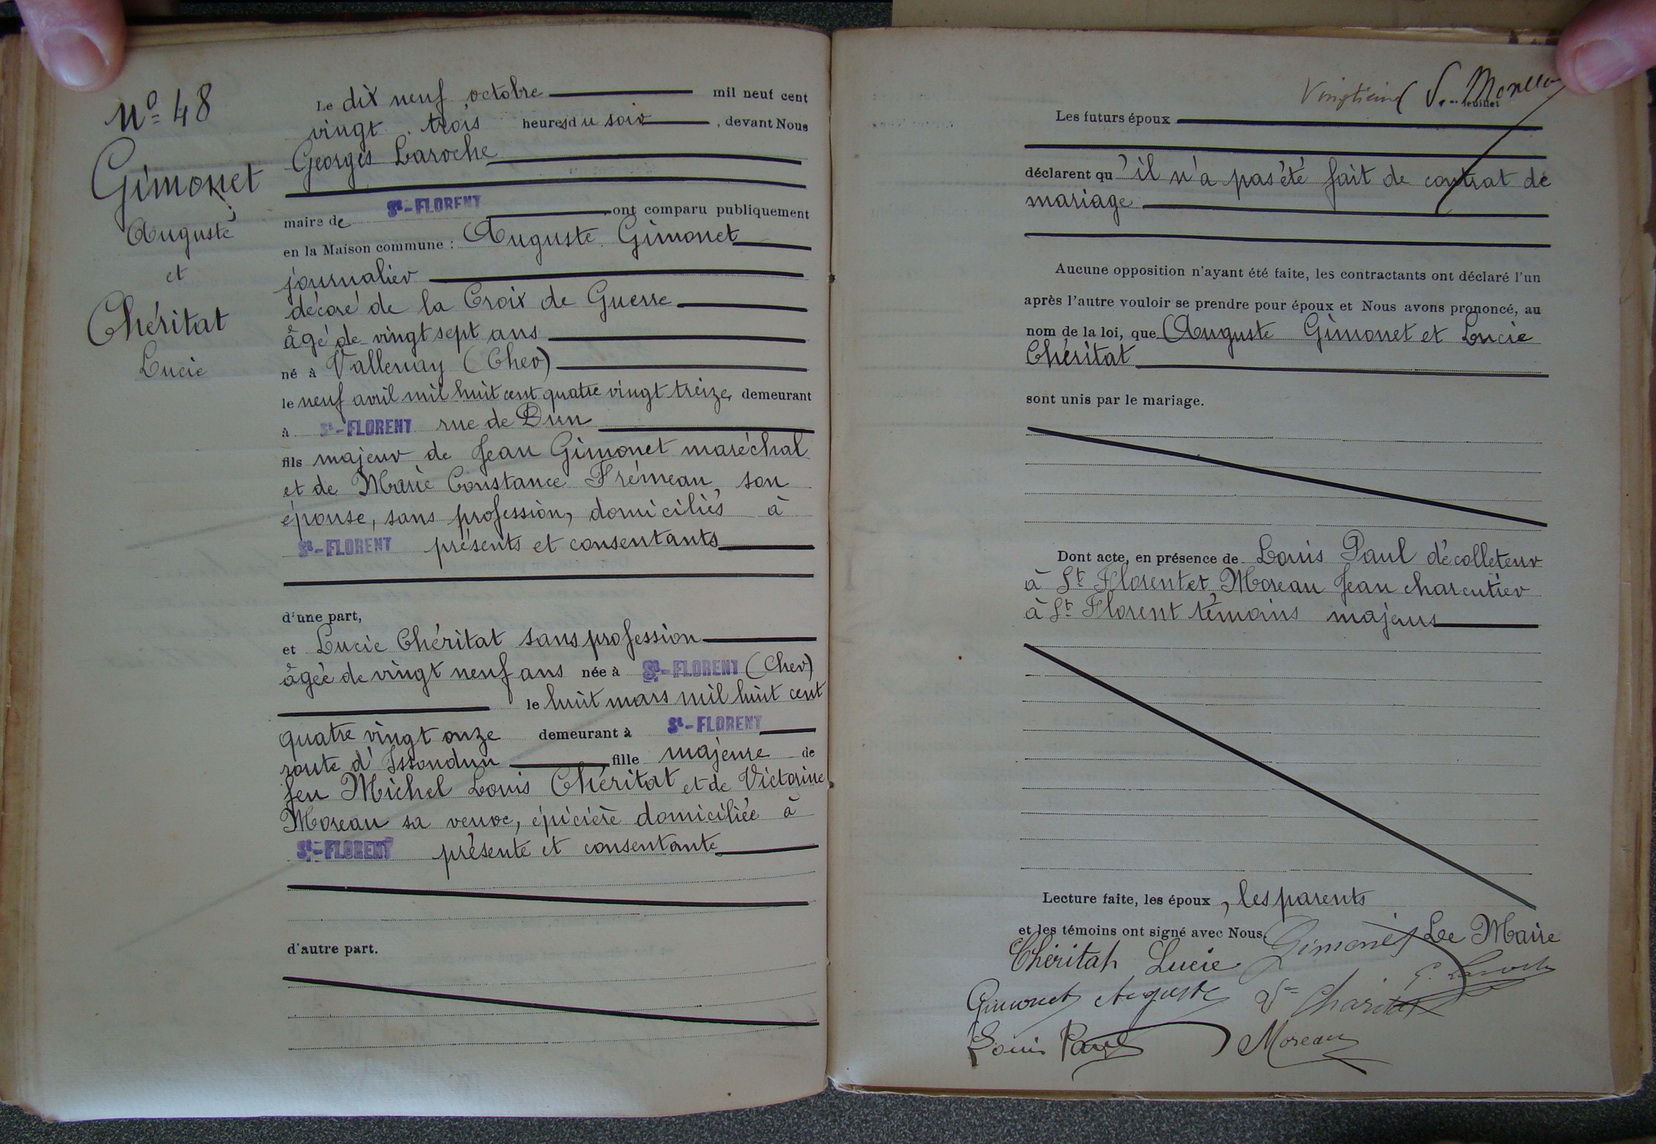 N° 48
Gimonet
Auguste
et
Chéritat
Lucie
Le dix neuf octobre mil neuf cent
vingt . trois heures du soir , devant Nous
Georges Laroche
maire de St-FLORENT ont comparu publiquement
en la Maison commune : Auguste Gimonet
journalier
décoré de la Croix de Guerre
âgé de vingt sept ans
né à Vallenay (Cher)
le neuf avril mil huit cent quatre vingt treize, demeurant
à St-FLORENT rue de Dun
fils majeur de Jean Gimonet maréchal
et de Marie Constance Frémeau, son
épouse, sans profession, domiciliés à
St-FLORENT présents et consentants
d'une part,
et Lucie Chéritat sans profession
âgée de vingt neuf ans née à St-FLORENT (Cher)
le huit mars mil huit cent
quatre vingt onze demeurant à St-FLORENT
route d'Issoudun fille majeure de
feu Michel Louis Chéritat et de Victorine
Moreau sa veuve, épicière domiciliée à
St-FLORENT présente et consentante
d'autre part.
feuillet
Les futurs époux
déclarent qu'il n'a pas été fait de contrat de
mariage
Aucune opposition n'ayant été faite, les contractants ont déclaré l'un
après l'autre vouloir se prendre pour époux et Nous avons prononcé, au
nom de la loi, que Auguste Gimonet et Lucie
Chéritat
sont unis par le mariage.
Dont acte, en présence de Louis Paul décolleteur
à St Florent et Moreau Jean charentier
à St Florent témoins majeurs
Lecture faite, les époux , les parents
et les témoins ont signé avec Nous. Gimonet Le Maire
Chéritat Lucie G. Laroche
Gimonet Auguste Ve Charitat
Louis Paul Moreau